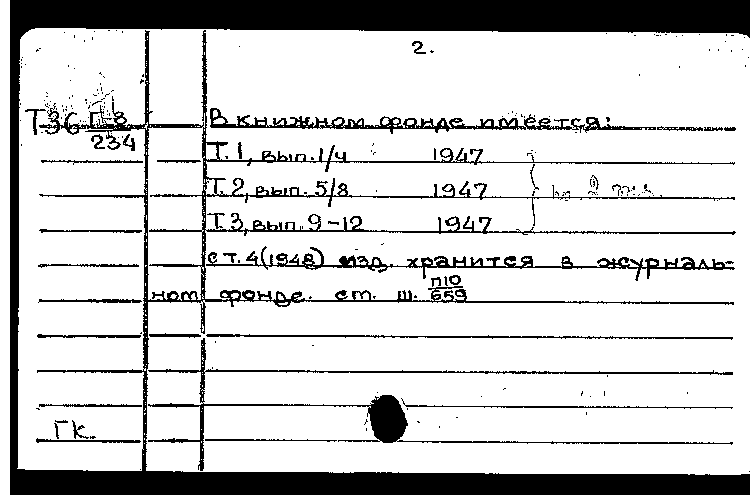 2.
Т36 Г-8/234
В книжном фонде имеется:
Т.1, вып. 1/4 1947
Т.2, вып. 5/8 1947
Т.3, вып. 9-12 1947
по 2 экз.
с т. 4 (1948) изд. хранится в журналь-
ном фонде. ст. ш. П10/659
ГК.